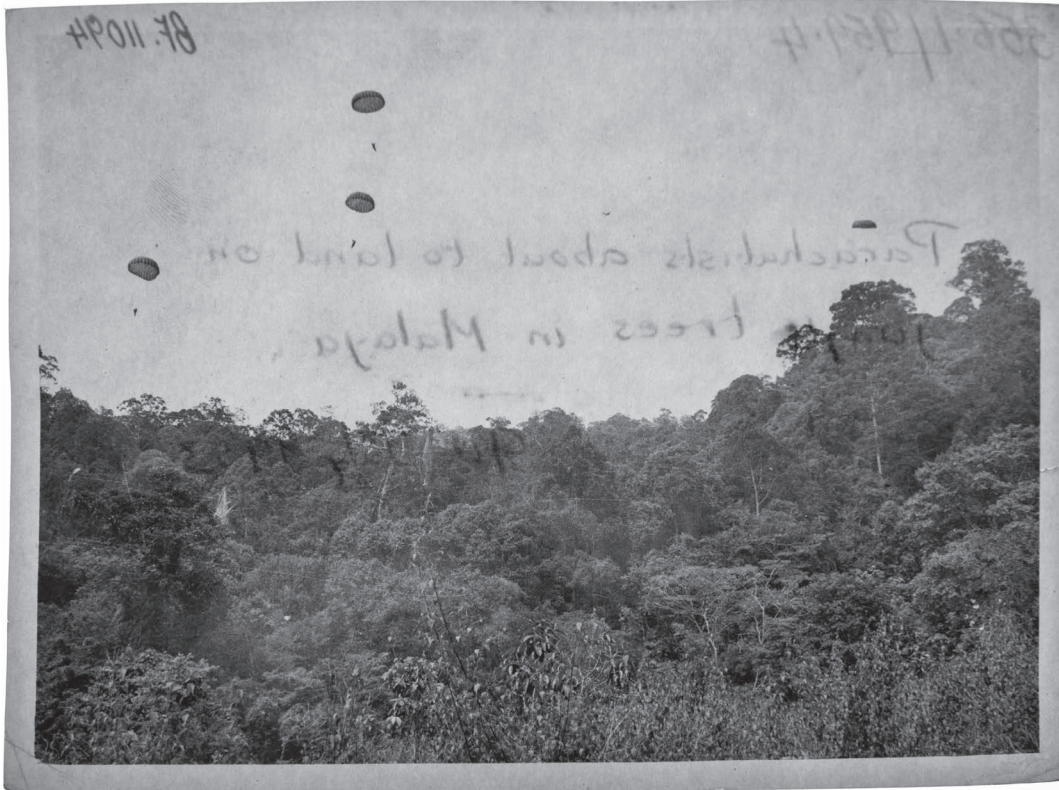 BF.11094
Parachutists about to land on
jungle trees in Malaya.